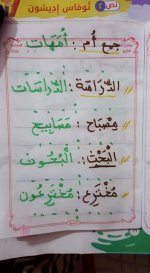 نص ٢ توماس إديسون
جمع أُم : أُمَّهات
الدِّرَاسَة : الدِّرَاسَات
مِصْبَاح : مَصَابِيح
البَحْث : البُحُوث
مُخْتَرِع : مُخْتَرِعُون